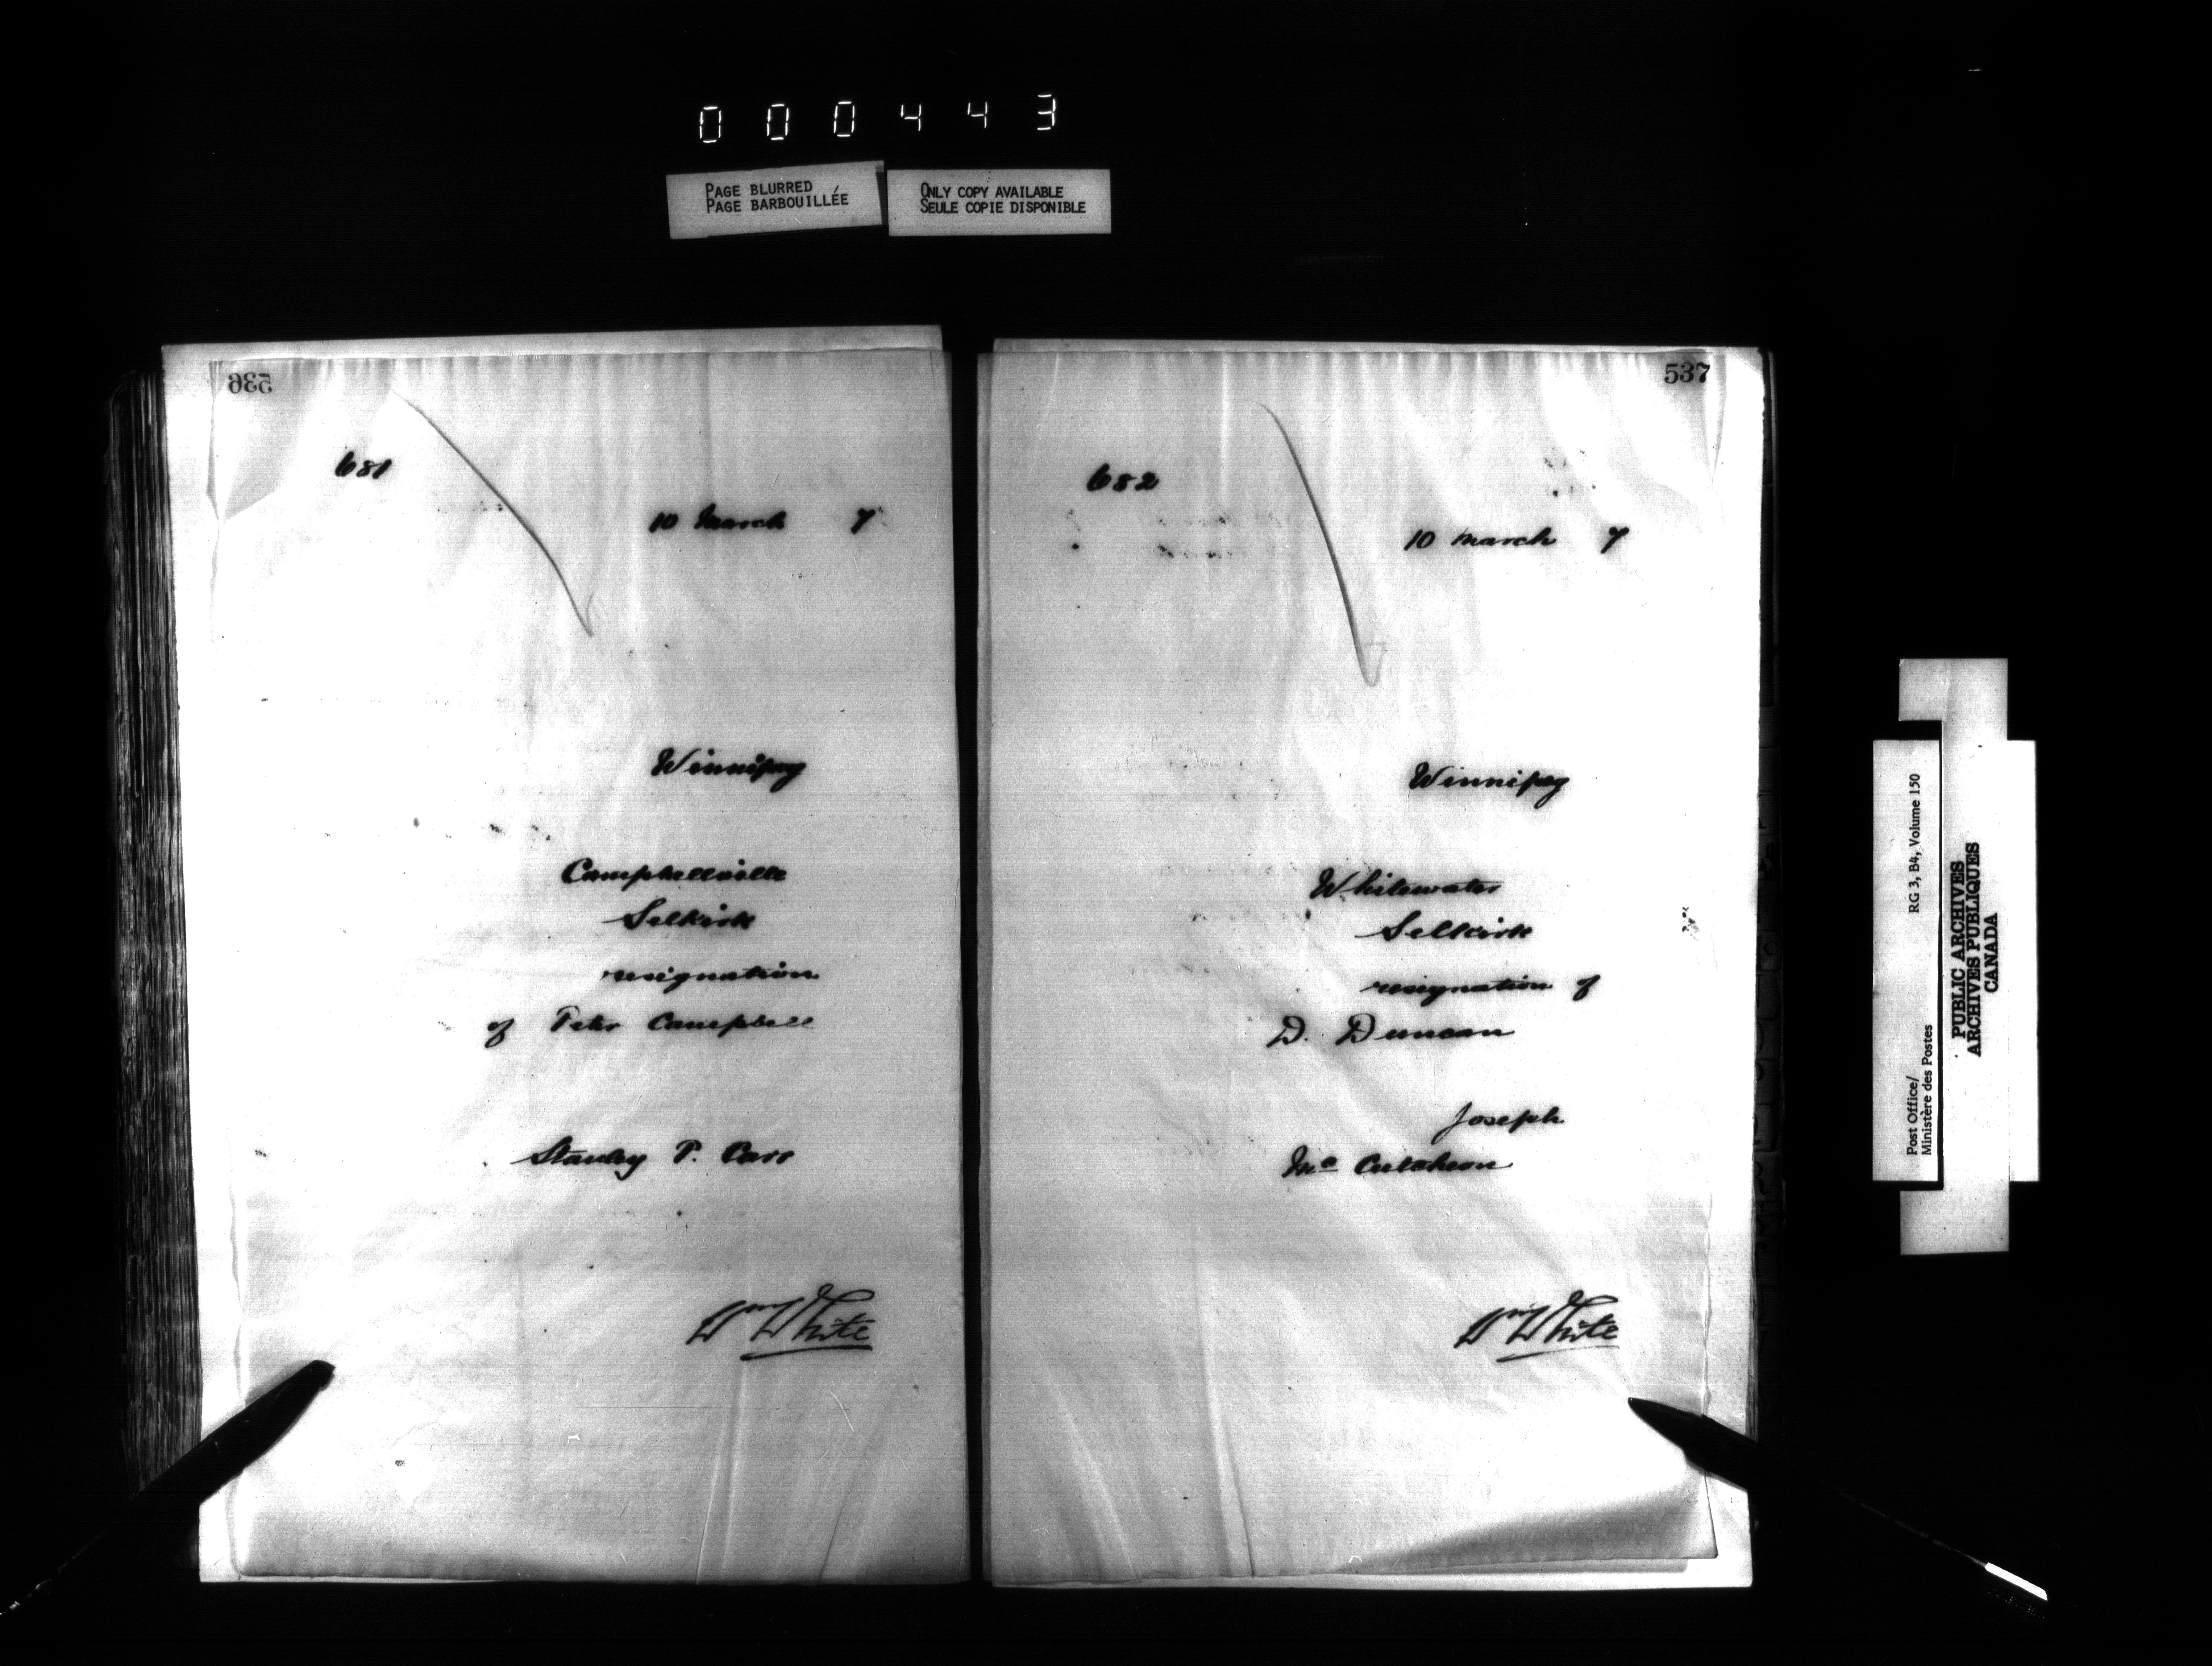 000443
PAGE BLURRED
PAGE BARBOUILLÉE
ONLY COPY AVAILABLE
SEULE COPIE DISPONIBLE
536
681
10 March 7
Winnipeg
Campbellville
Selkirk
resignation
of Peter Campbell
Stanley P. Carr
Wm White
537
682
10 March 7
Winnipeg
Whitewater
Selkirk
resignation of
D. Duncan
Joseph
Mc Cutcheon
Wm White
Post Office/ RG 3, B4, Volume 150
Ministère des Postes
PUBLIC ARCHIVES
ARCHIVES PUBLIQUES
CANADA